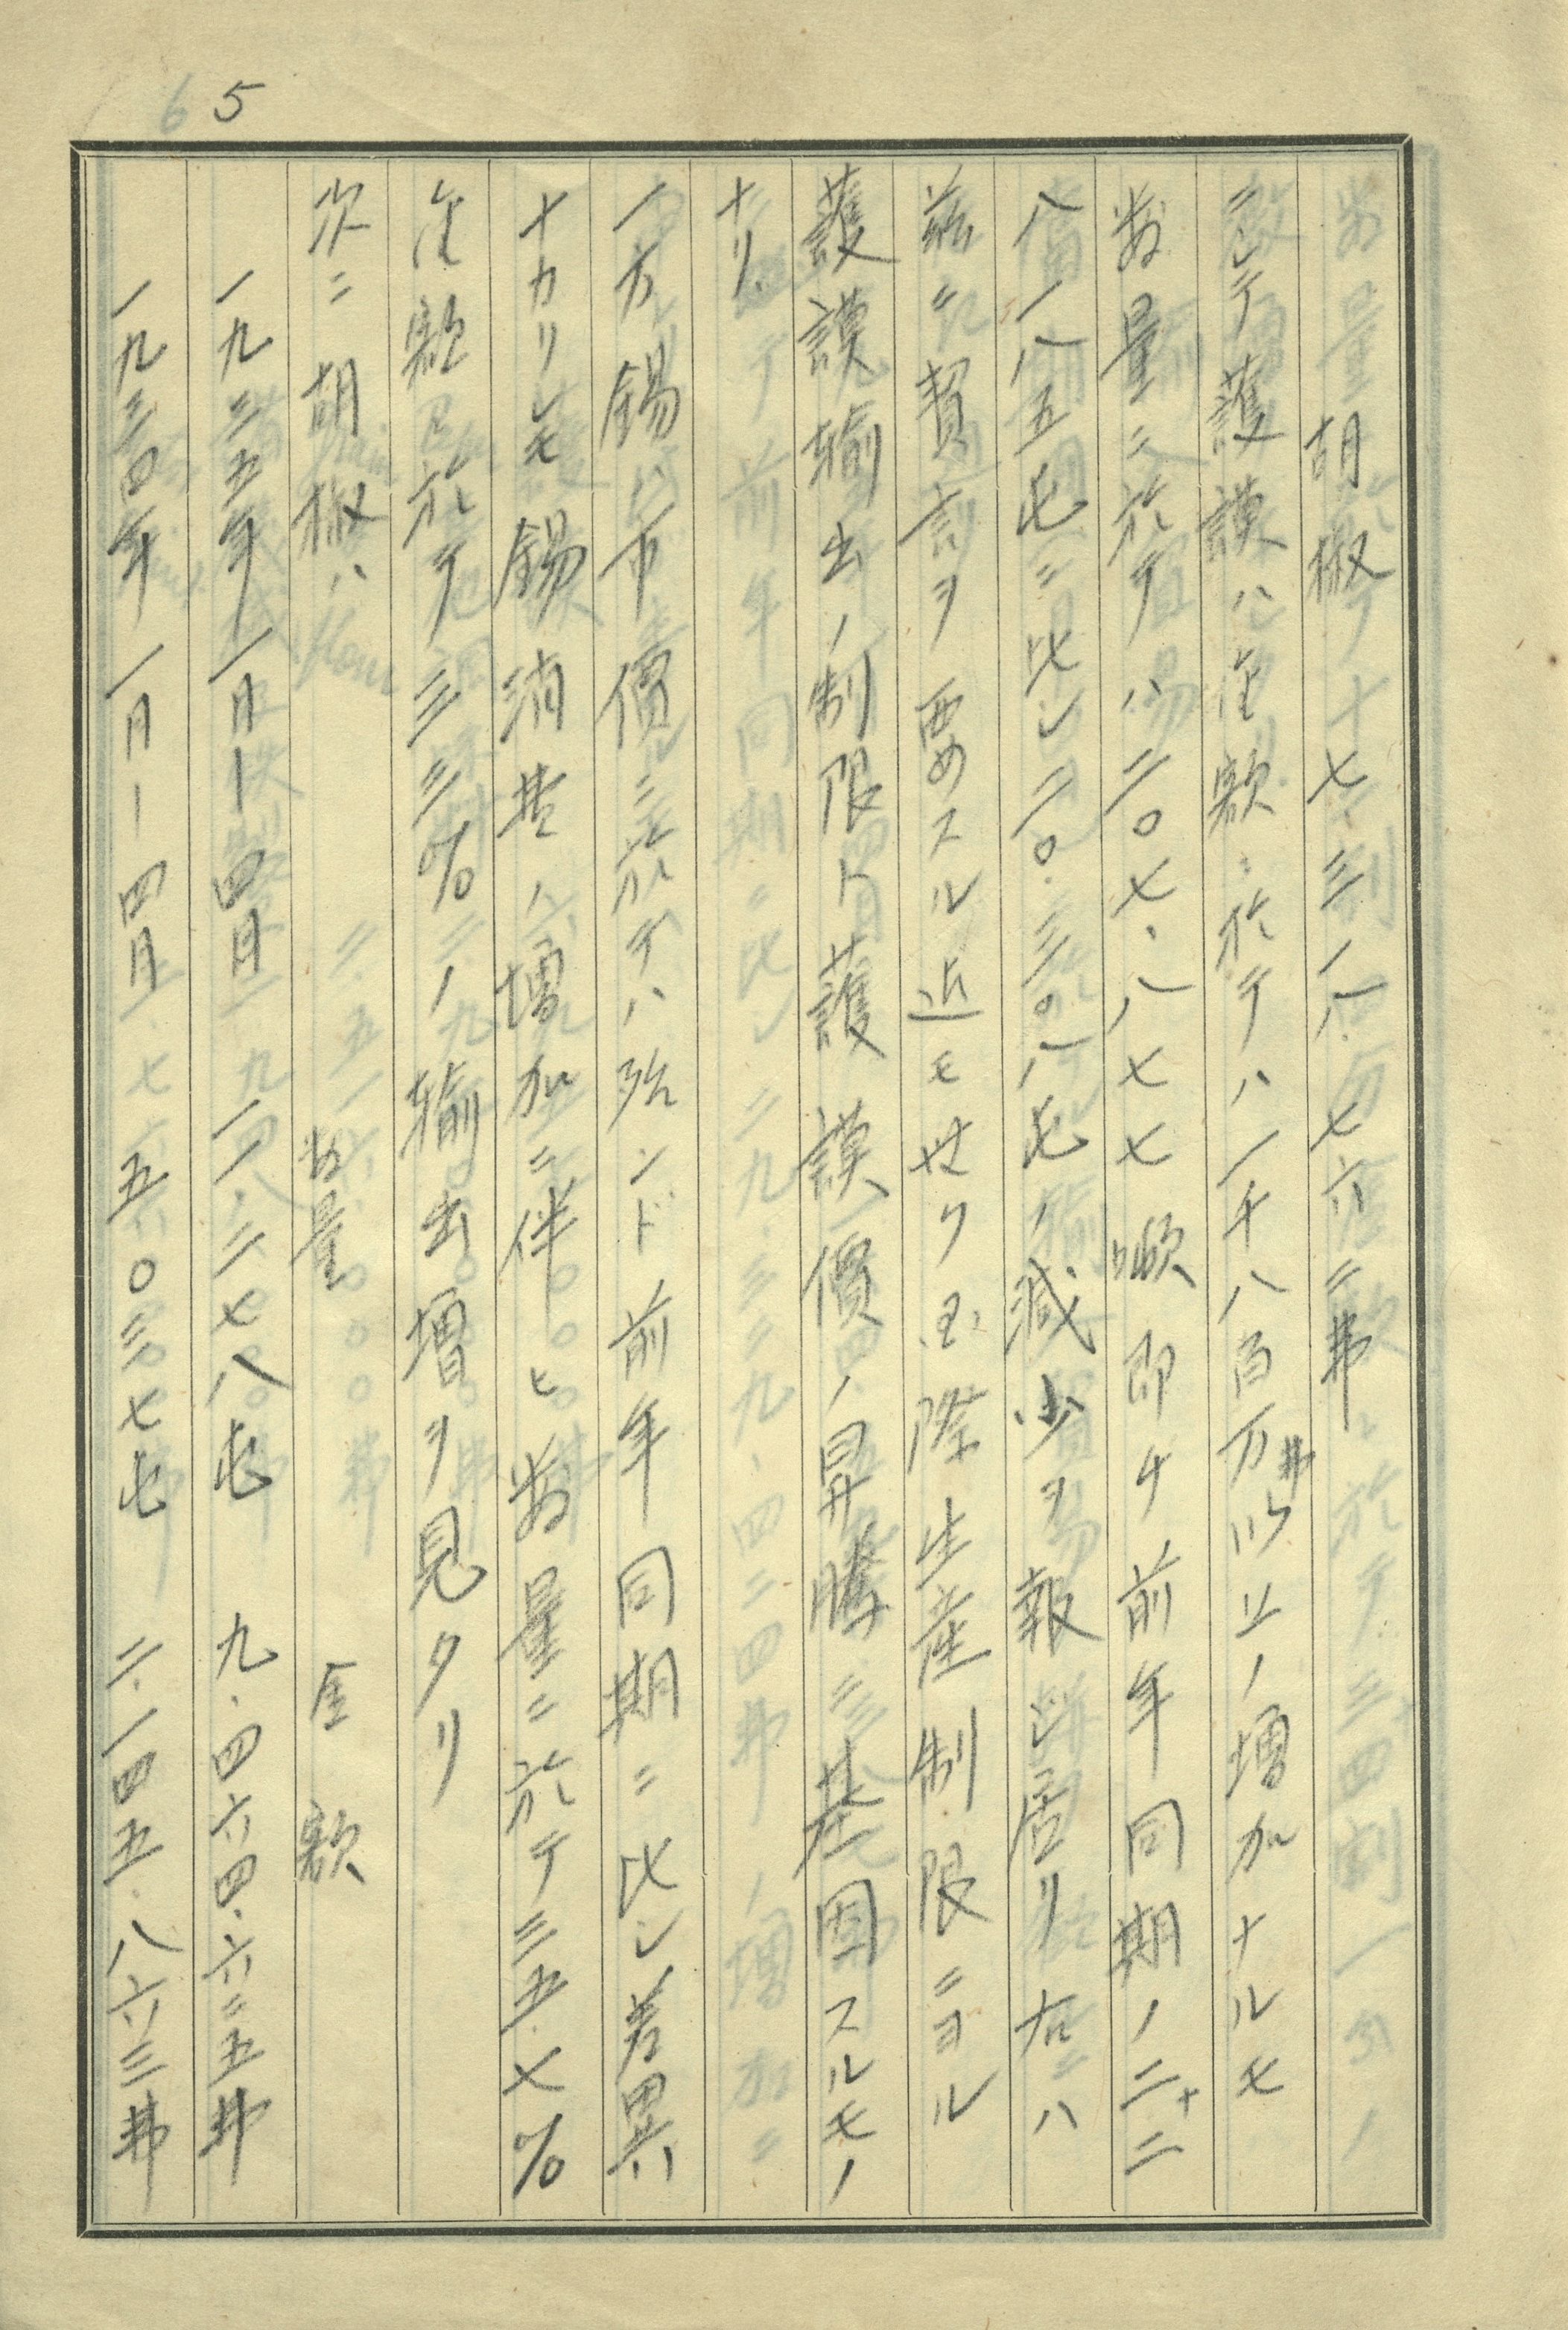 5
胡椒　七三一八・七六二弗
ニシテ護謨ハ金額ニ於テハ一千八百万弗以上ノ増加ナルモ
数量ニ於テハ二〇七・八七七噸即チ前年同期ノ二十二
八・一八五屯ニ比シ二〇・三〇八屯ノ減少ヲ報シ居リ右ニハ
茲ニ贅言ヲ要スル迄モセリ国際生産制限ニヨル
護謨輸出ノ制限ト護謨價ノ昇騰ニ基因スルモノ
ナリ
一方錫ハ市價ニ於テハ殆ンド前年同期ニ比シ差異
ナカリシモ錫消費ノ増加ニ伴ヒ数量ニ於テ三五・七%
金額ニ於テ三三%ノ輸出増ヲ見タリ
次ニ胡椒ハ　数量　金額
一九二五年一月ー四月　一一・二七八屯　九・四六四・六二五弗
一九三〇年一月ー四月　五〇三七屯　二・一四五・八六三弗